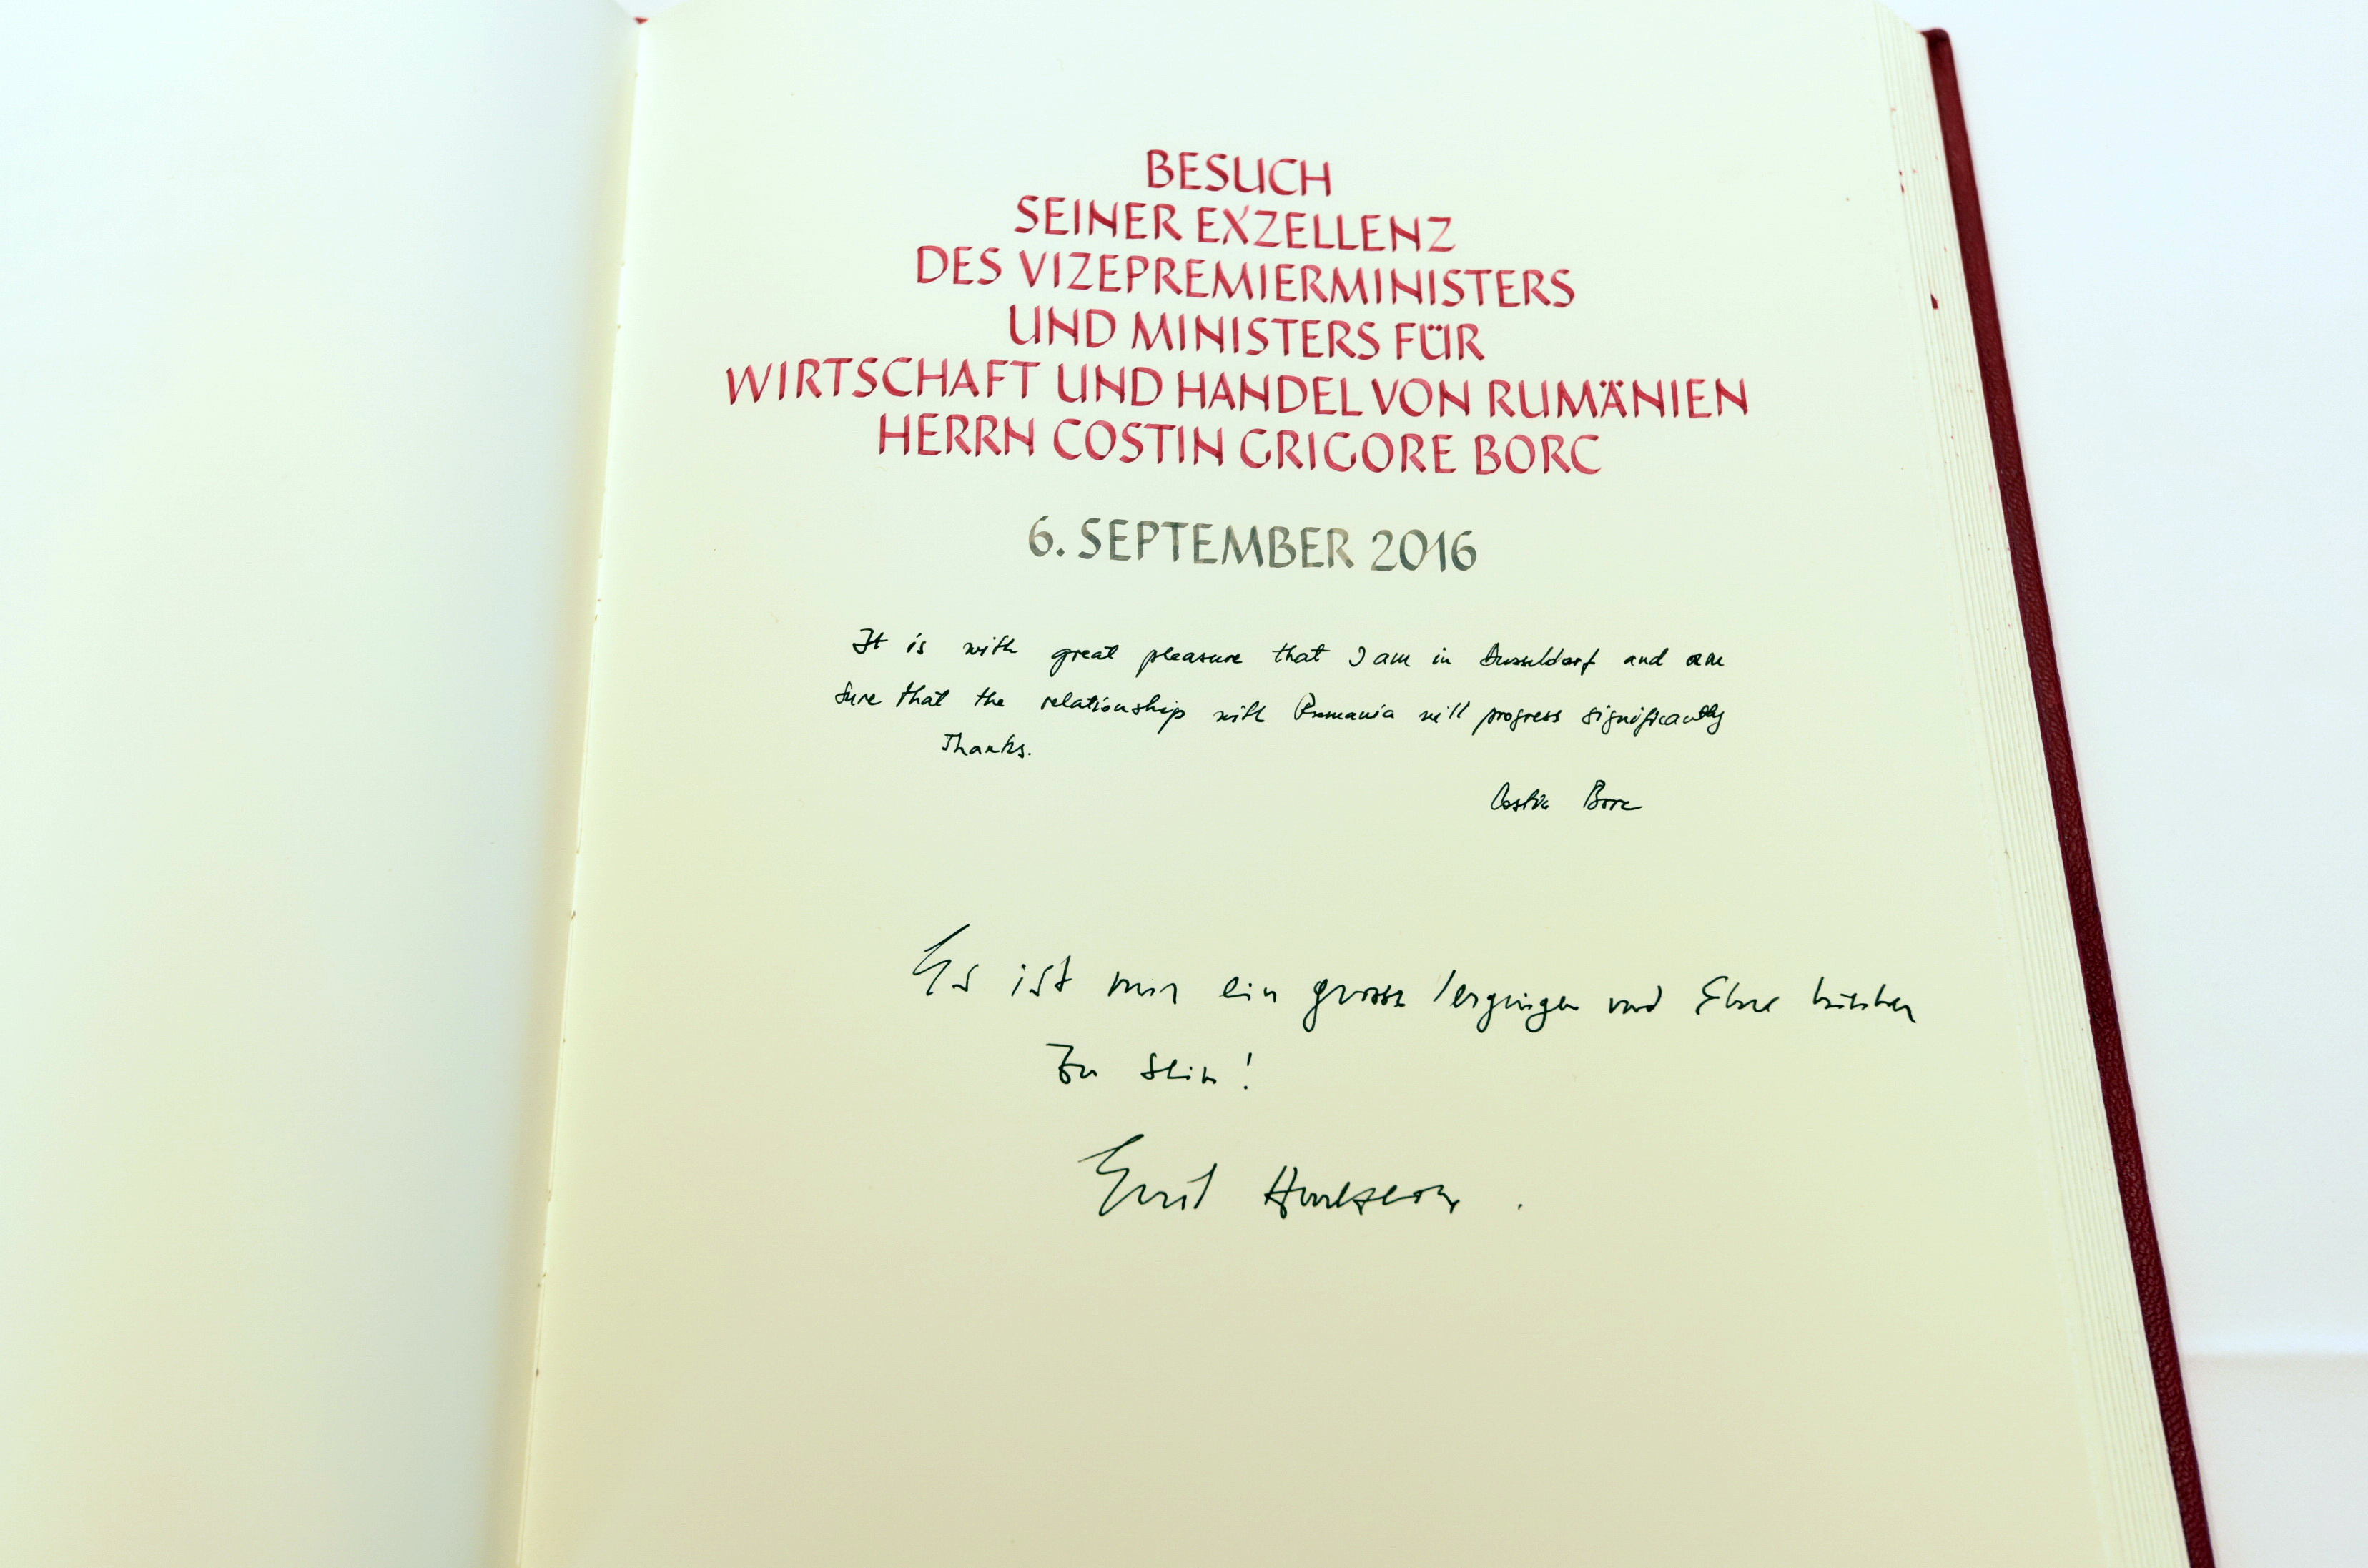 BESUCH
SEINER EXZELLENZ
DES VIZEPREMIERMINISTERS
UND MINISTERS FÜR
WIRTSCHAFT UND HANDEL VON RUMÄNIEN
HERRN COSTIN GRIGORE BORC
6. SEPTEMBER 2016
It is with great pleasure that I am in Dusseldorf and am
sure that the relationship with Romania will progress significantly
Thanks.
Costin Borc
Es ist mir ein grosse und Ehre
zu sein!